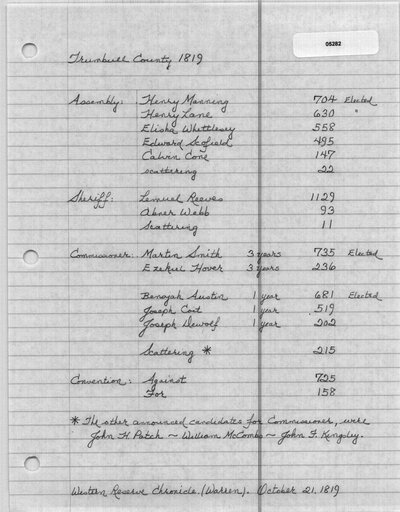 05282
Trumbull County 1819
Assembly: Henry Manning 704 Elected
Henry Lane 630 "
Elisha Whittlesey 558
Edward Scofield 495
Calvin Cone 147
scattering 22
Sheriff: Lemuel Reeves 1129
Abner Webb 93
Scattering 11
Commissioner: Martin Smith 3 years 735 Elected
Ezekiel Hover 3 years 236
Benajah Austin 1 year 681 Elected
Joseph Coit 1 year 519
Joseph Dewolf 1 year 202
Scattering * 215
Convention: Against 725
For 158
* The other announced candidates for Commissioner, were
John H. Patch ~ William McCombs ~ John F. Kingsley.
Western Reserve Chronicle. (Warren). October 21, 1819